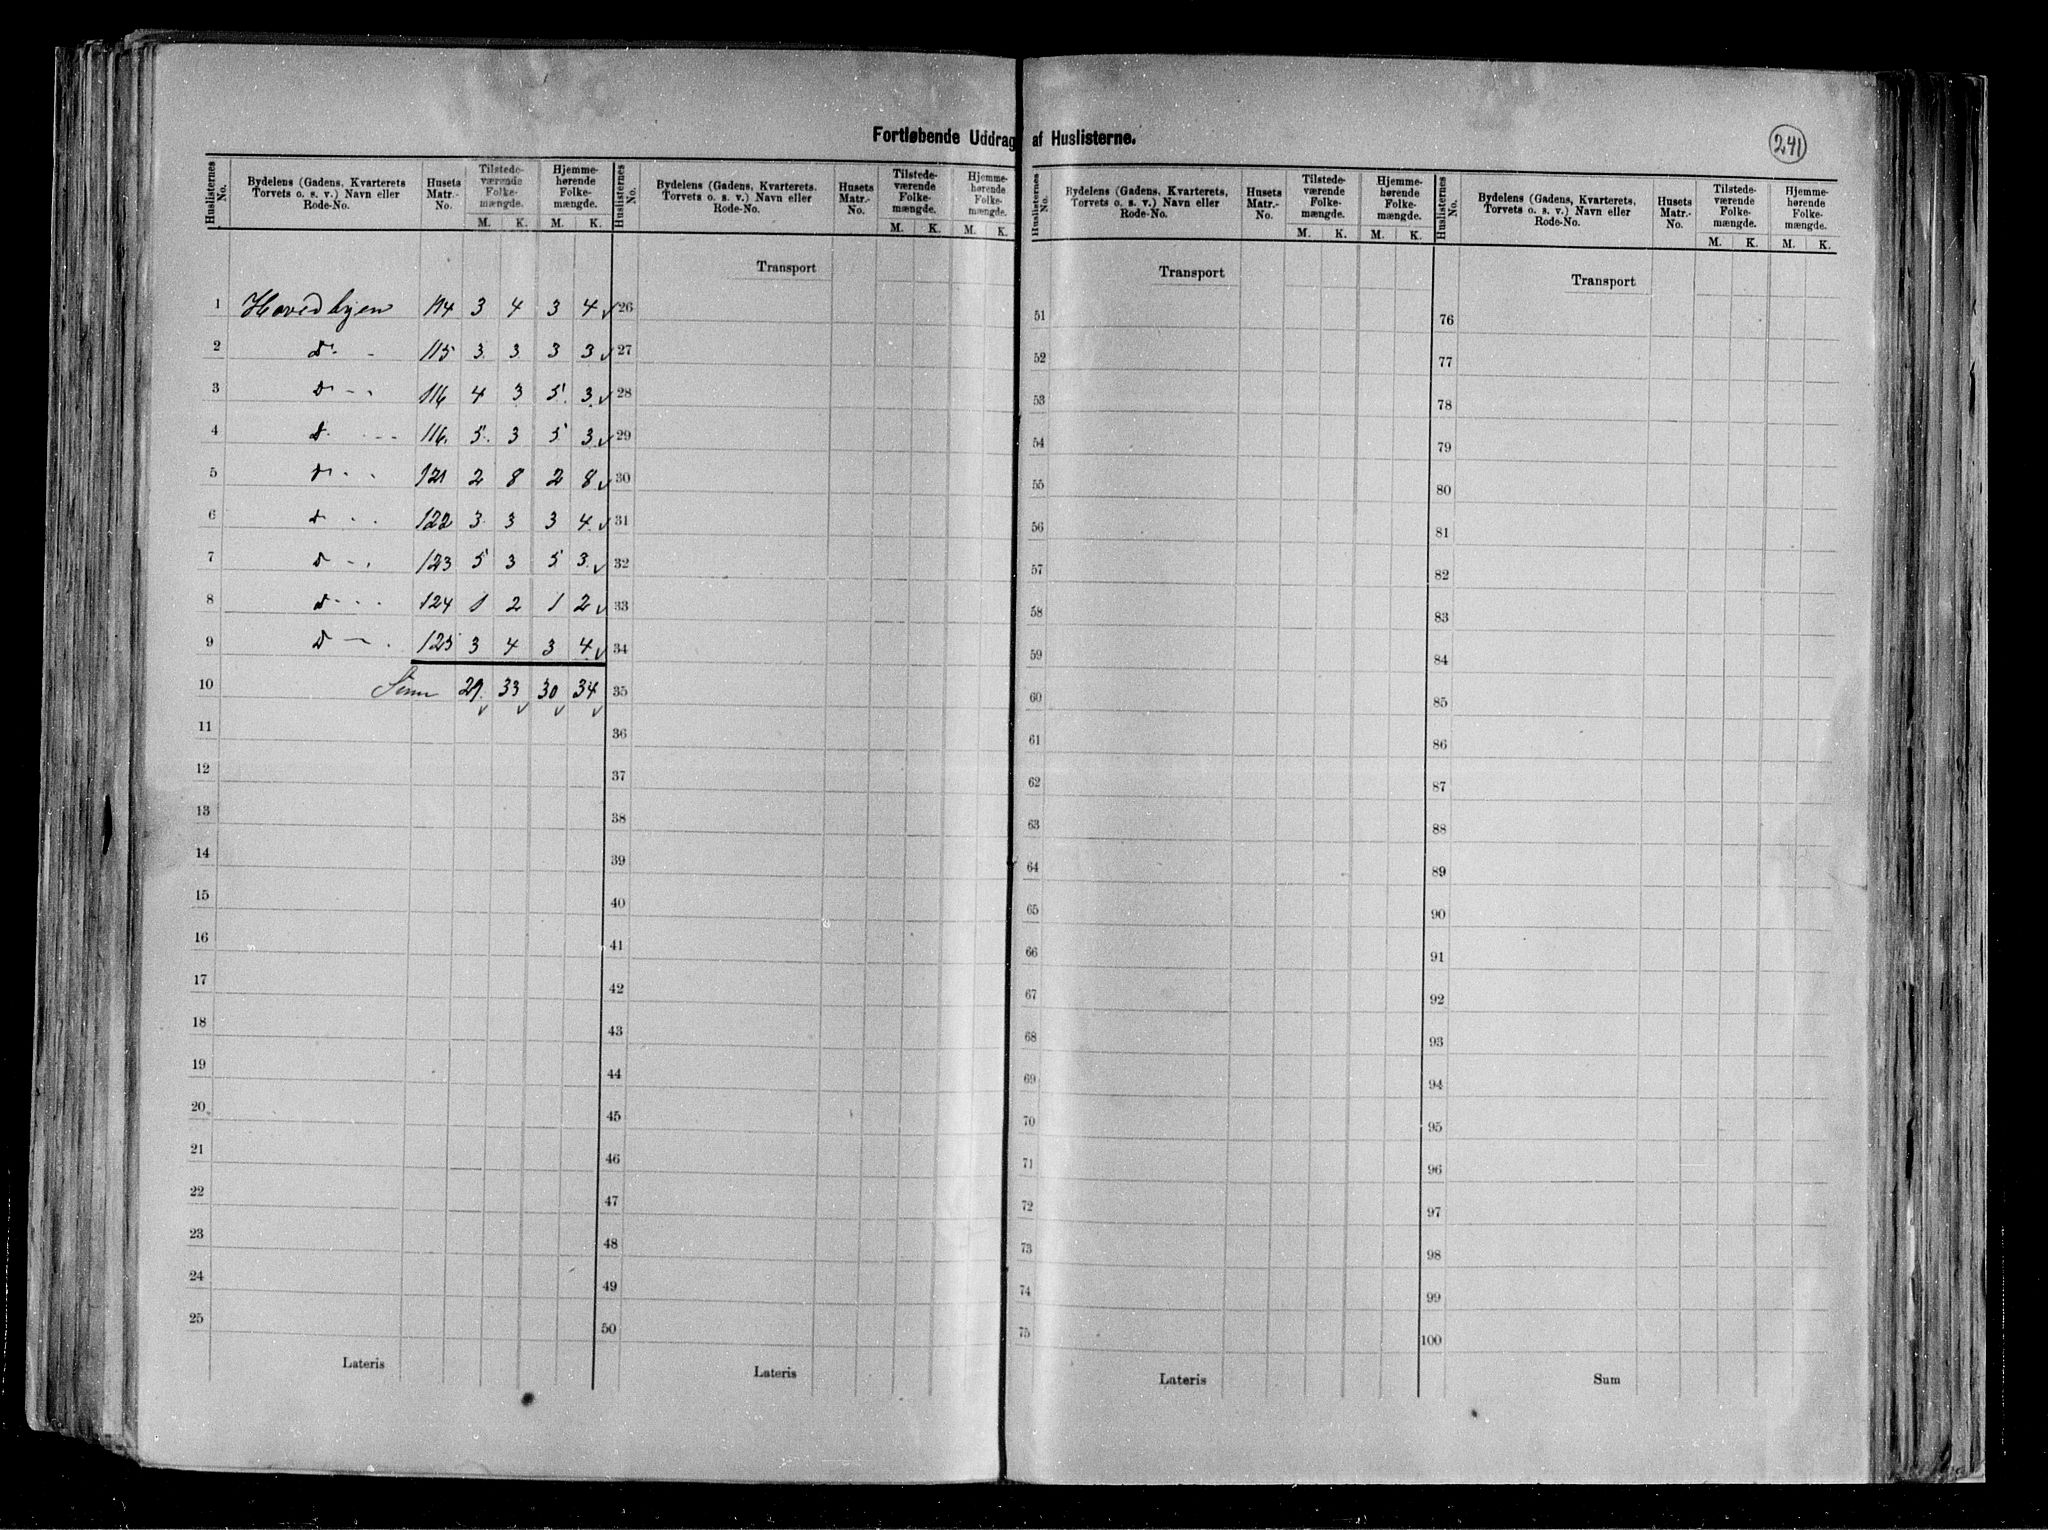 Fortløbende Uddrag af Huslisterne.
241
Huslisternes No. | Bydelens (Gadens, Kvarterets Torvets o. s. v.) Navn eller Rode-No. | Husets Matr.-No. | Tilstedeværende Folkemængde. M. K. | Hjemmehørende Folkemængde. M. K.
1 Hovedbyen 114 3 4 3 4 ✓
2 do - 115 3 3 3 3 ✓
3 do - - 116 4 3 5 3 ✓
4 do - - 116 5 3 5 3 ✓
5 do - - 121 2 8 2 8 ✓
6 do - - 122 3 3 3 4 ✓
7 do - - 123 5 3 5 3 ✓
8 do - - - 124 1 2 1 2 ✓
9 do - - 125 3 4 3 4 ✓
10 Sum 29 33 30 34
✓ ✓ ✓ ✓
11
12
13
14
15
16
17
18
19
20
21
22
23
24
25
Lateris
Huslisternes No. | Bydelens (Gadens, Kvarterets, Torvets o. s. v.) Navn eller Rode-No. | Husets Matr.-No. | Tilstedeværende Folkemængde. M. K. | Hjemmehørende Folkemængde. M. K.
Transport
26
27
28
29
30
31
32
33
34
35
36
37
38
39
40
41
42
43
44
45
46
47
48
49
50
Lateris
Huslisternes No. | Bydelens (Gadens, Kvarterets, Torvets o. s. v.) Navn eller Rode-No. | Husets Matr.-No. | Tilstedeværende Folkemængde. M. K. | Hjemmehørende Folkemængde. M. K.
Transport
51
52
53
54
55
56
57
58
59
60
61
62
63
64
65
66
67
68
69
70
71
72
73
74
75
Lateris
Huslisternes No. | Bydelens (Gadens, Kvarterets, Torvets o. s. v.) Navn eller Rode-No. | Husets Matr.-No. | Tilstedeværende Folkemængde. M. K. | Hjemmehørende Folkemængde. M. K.
Transport
76
77
78
79
80
81
82
83
84
85
86
87
88
89
90
91
92
93
94
95
96
97
98
99
100
Sum